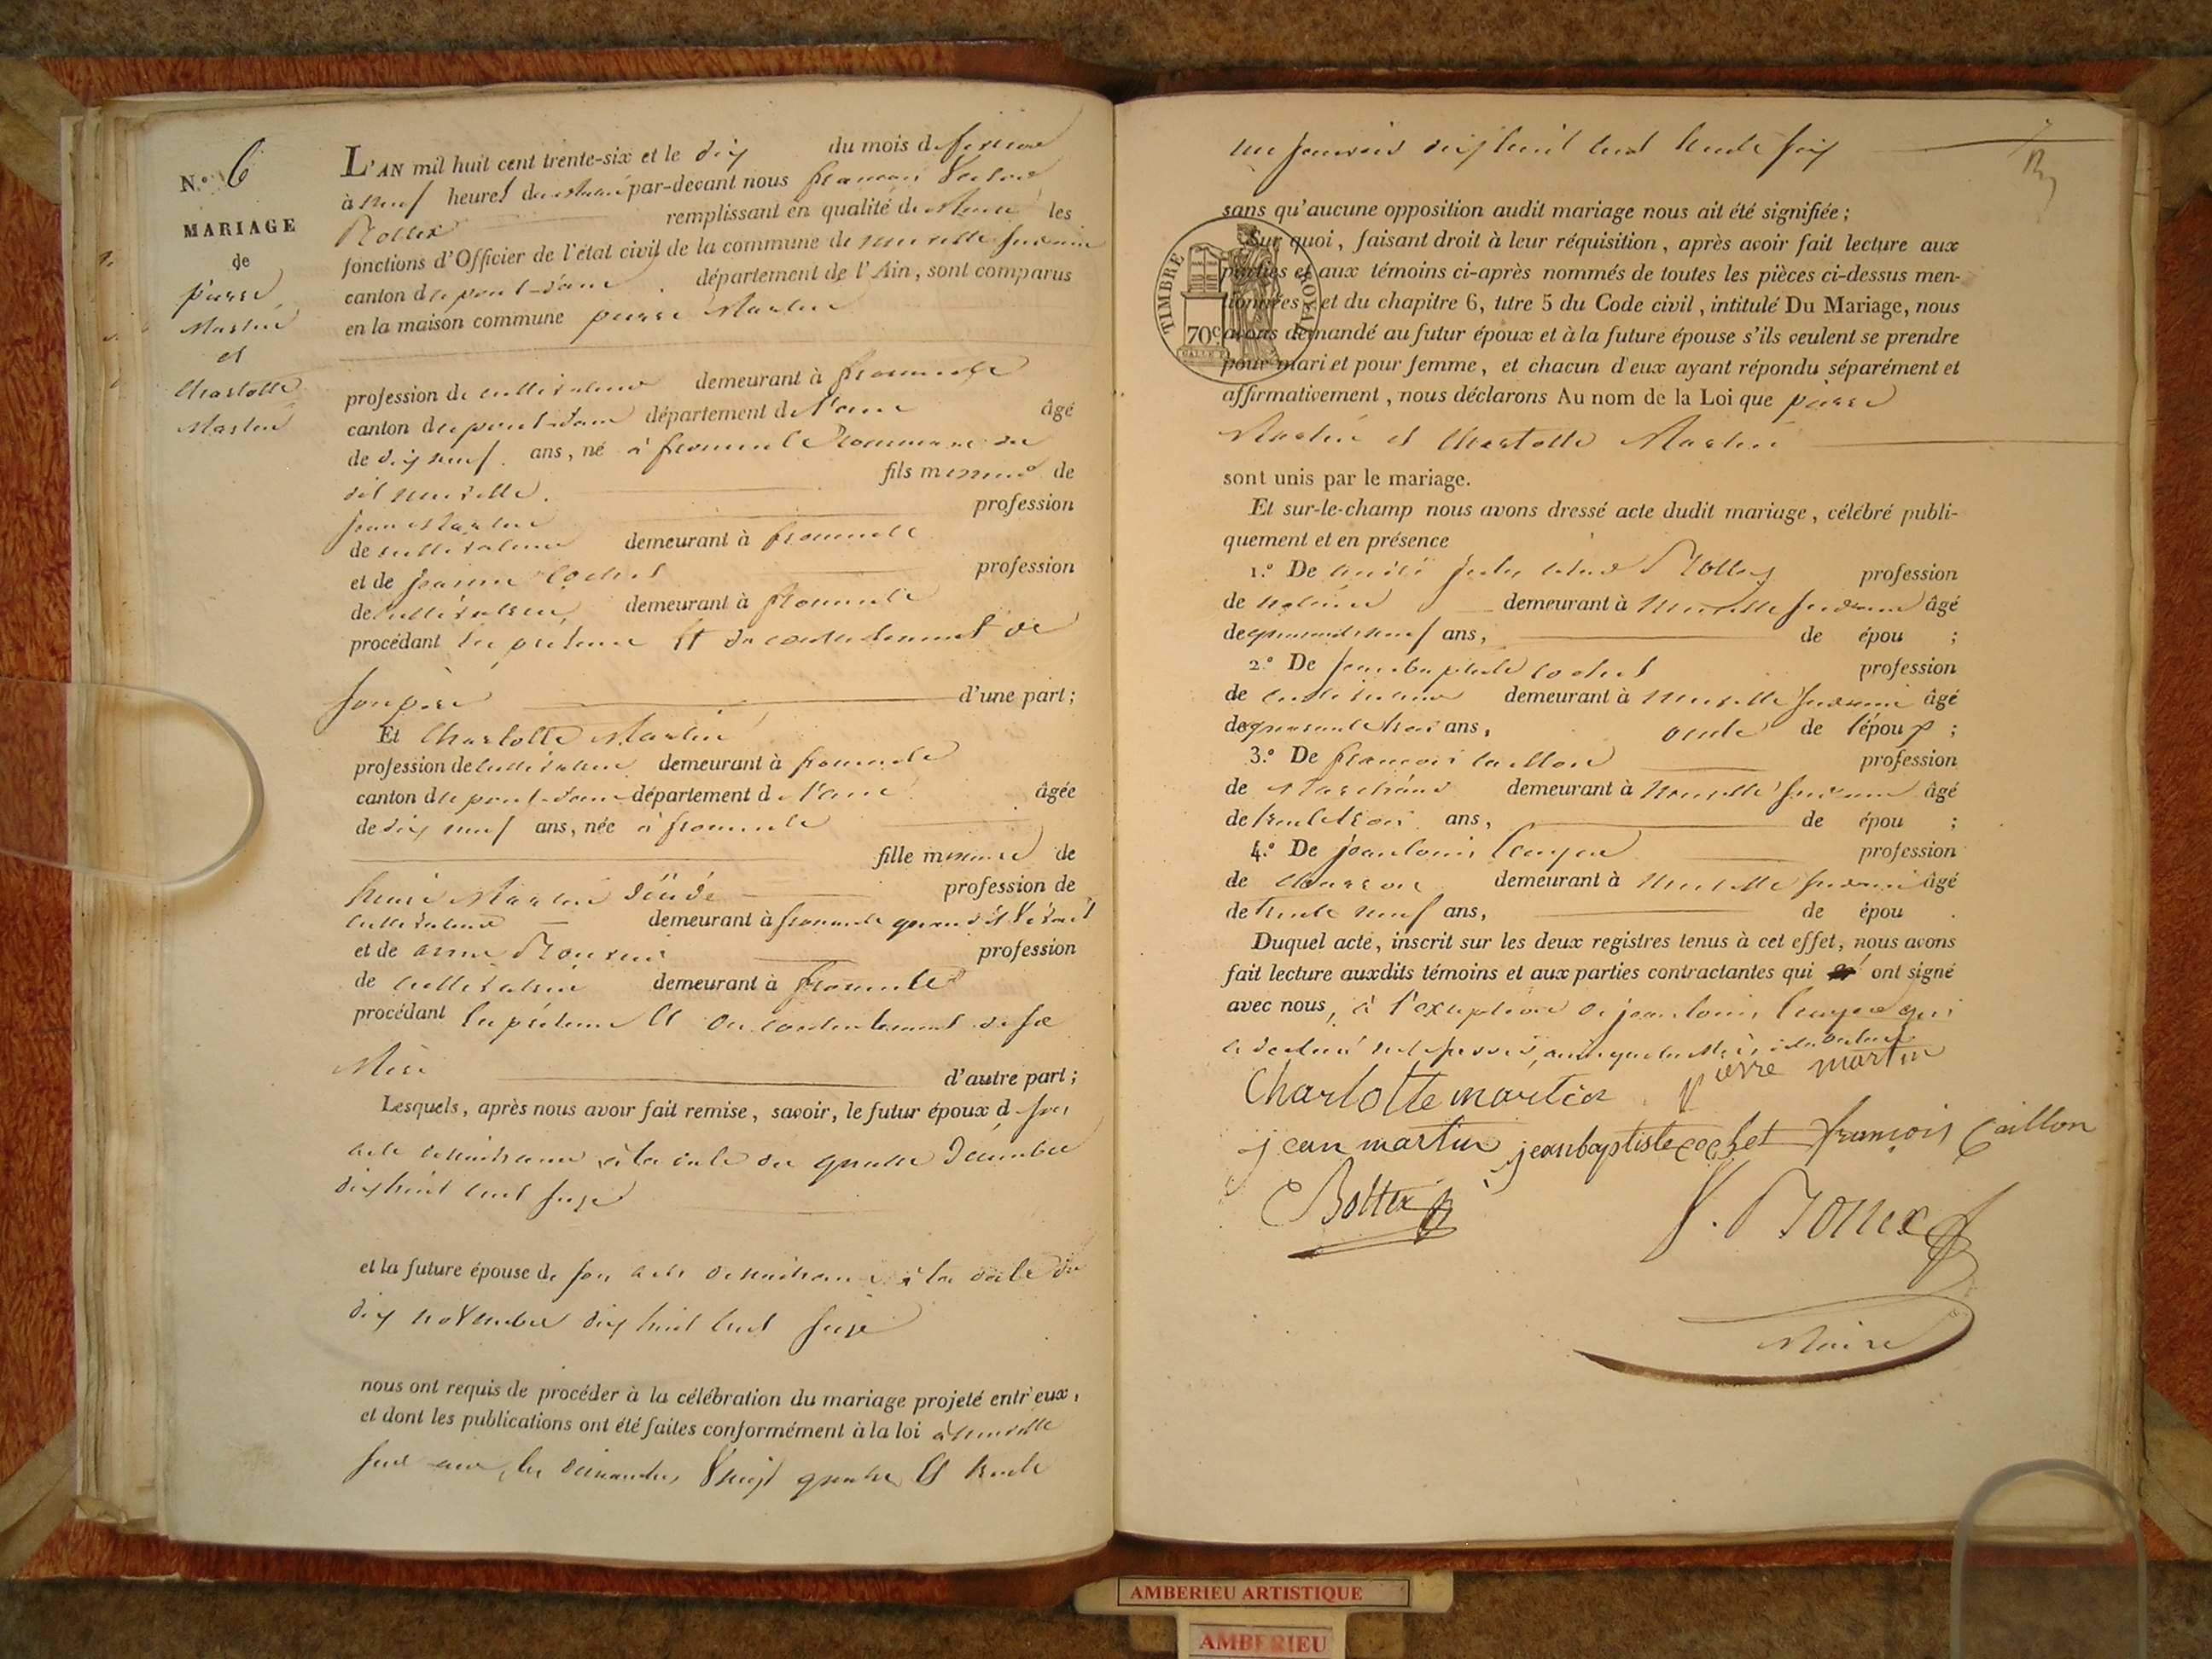 N.º 6
MARIAGE
de
pierre
Martin
et
Charlotte
Martin
L'AN mil huit cent trente-six et le dix du mois de fevrier
à neuf heures du matin par-devant nous françois Victor
Bottex remplissant en qualité de Maire les
fonctions d'Officier de l'état civil de la commune de neuville sur ain
canton de pont-d'ain département de l'Ain, sont comparus
en la maison commune pierre Martin
profession de cultivateur demeurant à fromente
canton de pont-d'ain département de l'ain âgé
de dix neuf ans, né à fromente commune du
dit neuville. fils mineur de
jean Martin profession
de cultivateur demeurant à fromente
et de jeanne Cochet profession
de cultivatrice demeurant à fromente
procédant les présence et du consentement de
son père d'une part;
Et Charlotte Martin
profession de cultivatrice demeurant à fromente
canton de pont-d'ain département de l'ain âgée
de dix neuf ans, née à fromente
fille mineure de
henri Martin décédé profession de
cultivateur demeurant à fromente quand il vivait
et de anne profession
de cultivatrice demeurant à fromente
procédant les présence et du consentement de sa
Mère d'autre part;
Lesquels, après nous avoir fait remise, savoir, le futur époux d son
acte de naissance à la date du quatre Décembre
dix huit cent seize
et la future épouse de son acte de naissance à la date du
dix novembre dix huit cent seize
nous ont requis de procéder à la célébration du mariage projeté entr'eux,
et dont les publications ont été faites conformément à la loi à neuville
sur ain, les dimanches vingt quatre et trente
un janvier dix huit cent trente six
sans qu'aucune opposition audit mariage nous ait été signifiée;
Sur quoi, faisant droit à leur réquisition, après avoir fait lecture aux
parties et aux témoins ci-après nommés de toutes les pièces ci-dessus men-
tionnées, et du chapitre 6, titre 5 du Code civil, intitulé Du Mariage, nous
avons demandé au futur époux et à la future épouse s'ils veulent se prendre
pour mari et pour femme, et chacun d'eux ayant répondu séparément et
affirmativement, nous déclarons Au nom de la Loi que pierre
Martin et Charlotte Martin
TIMBRE ROYAL
70c
sont unis par le mariage.
Et sur-le-champ nous avons dressé acte dudit mariage, célébré publi-
quement et en présence
1.º De Bottex profession
de notaire demeurant à Neuville sur ain âgé
de neuf ans, de épou ;
2.º De jean baptiste cochet profession
de cultivateur demeurant à neuville sur ain âgé
de quarante trois ans, oncle de l'époux ;
3.º De françois Caillon profession
de Marchand demeurant à Neuville sur ain âgé
de trente trois ans, de épou ;
4.º De jean louis profession
de demeurant à Neuville sur ain âgé
de trente neuf ans, de épou .
Duquel acte, inscrit sur les deux registres tenus à cet effet, nous avons
fait lecture auxdits témoins et aux parties contractantes qui ont signé
avec nous, à l'exception de jean louis qui
a déclaré ne le savoir, ainsi que la Mère
Charlotte martin pierre martin
jean martin jean baptiste cochet françois Caillon
Bottex V. Bottex
Maire
AMBERIEU ARTISTIQUE
AMBERIEU